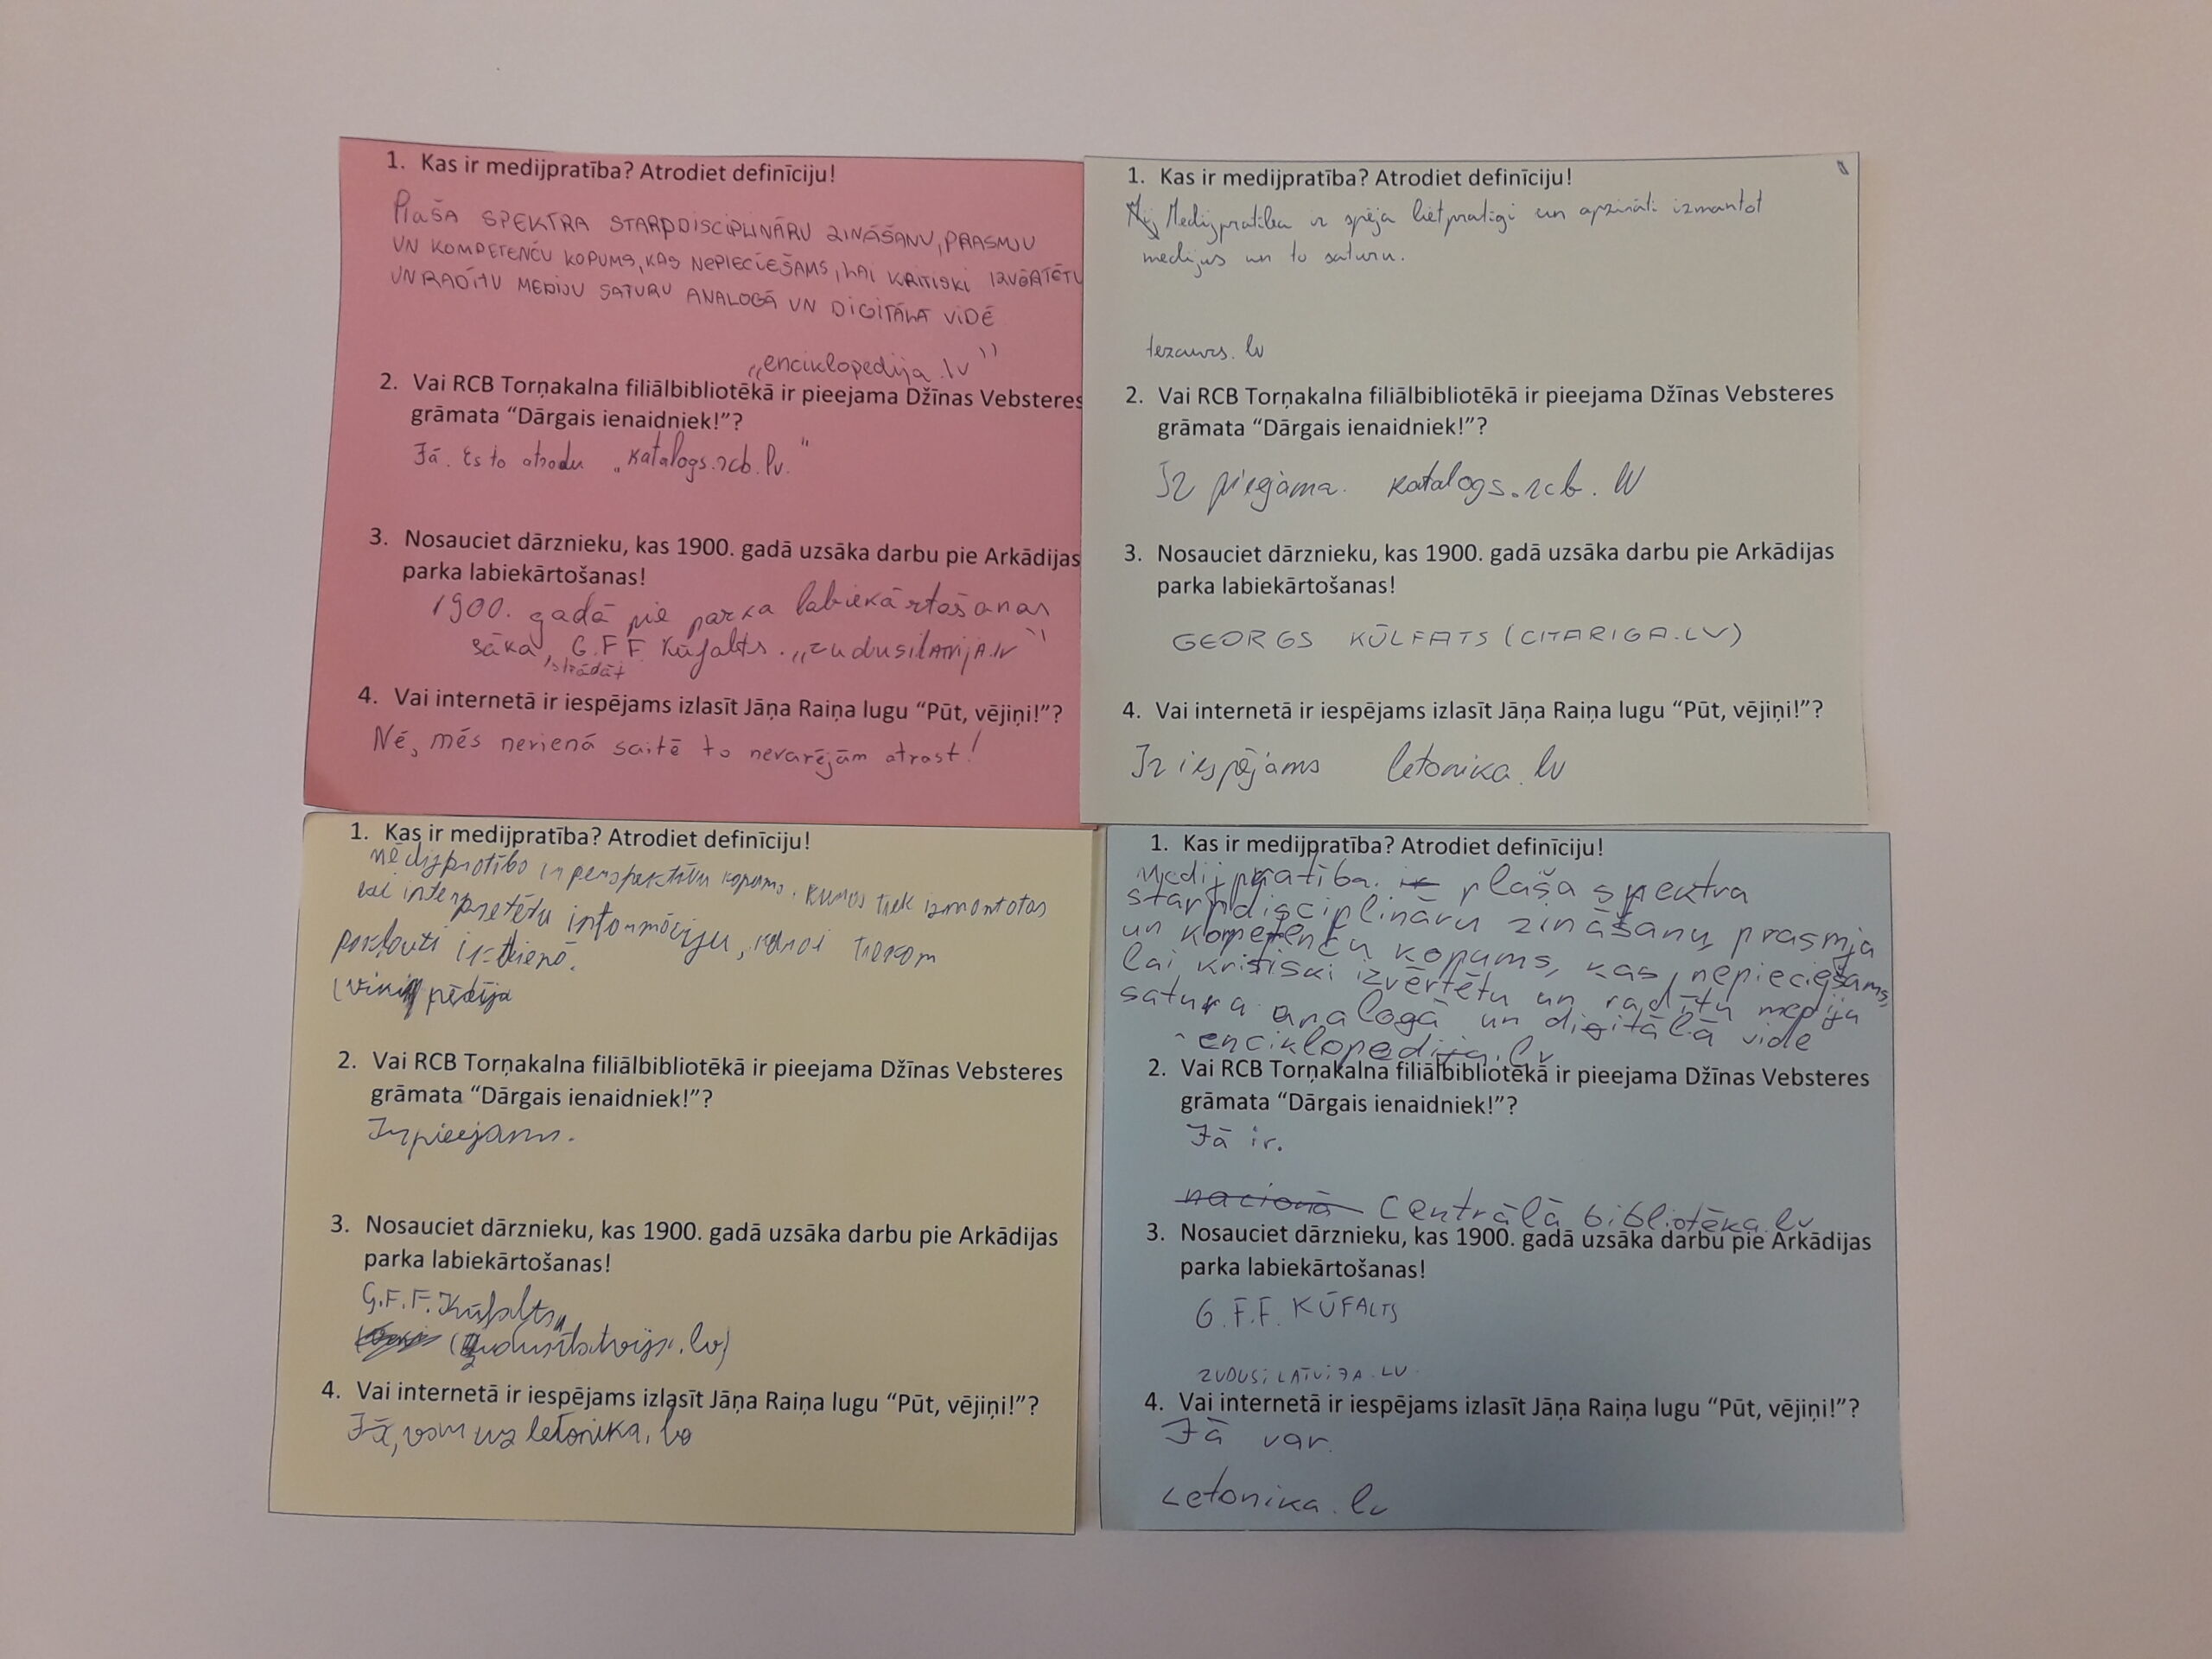 1. Kas ir medijpratība? Atrodiet definīciju!
PlaŠA SPEKTRA STARPDISCIPLINĀRU ZINĀŠANU, PRASMJU
UN KOMPETENČU KOPUMS, KAS NEPIECIEŠAMS, LAI KRITISKI IZVĒRTĒTU
UN RADĪTU MEDIJU SATURU ANALOGĀ UN DIGITĀLĀ VIDĒ
„enciklopedija.lv”
2. Vai RCB Torņakalna filiālbibliotēkā ir pieejama Džīnas Vebsteres
grāmata “Dārgais ienaidniek!”?
Jā. Es to atrodu „katalogs.rcb.lv.”
3. Nosauciet dārznieku, kas 1900. gadā uzsāka darbu pie Arkādijas
parka labiekārtošanas!
1900. gadā pie parka labiekārtošanas
sāka strādāt G.F.F. Kūfalts. „zudusilatvija.lv”
4. Vai internetā ir iespējams izlasīt Jāņa Raiņa lugu “Pūt, vējiņi!”?
Nē, mēs nevienā saitē to nevarējām atrast!
1. Kas ir medijpratība? Atrodiet definīciju!
Medijpratība ir spēja lietpratīgi un apzināti izmantot
medijus un to saturu.
tezaurs.lv
2. Vai RCB Torņakalna filiālbibliotēkā ir pieejama Džīnas Vebsteres
grāmata “Dārgais ienaidniek!”?
Ir pieejama. katalogs.rcb.lv
3. Nosauciet dārznieku, kas 1900. gadā uzsāka darbu pie Arkādijas
parka labiekārtošanas!
GEORGS KŪLFATS (CITARIGA.LV)
4. Vai internetā ir iespējams izlasīt Jāņa Raiņa lugu “Pūt, vējiņi!”?
Ir iespējams letonika.lv
1. Kas ir medijpratība? Atrodiet definīciju!
medijpratība ir perspektīvu kopums, kuras tiek izmantotas
lai interpretētu informāciju, kurai tiekam
pakļauti ikdienā.
(Vikipēdija
2. Vai RCB Torņakalna filiālbibliotēkā ir pieejama Džīnas Vebsteres
grāmata “Dārgais ienaidniek!”?
Ir pieejama.
3. Nosauciet dārznieku, kas 1900. gadā uzsāka darbu pie Arkādijas
parka labiekārtošanas!
G.F.F. Kūfalts
(zudusilatvija.lv)
4. Vai internetā ir iespējams izlasīt Jāņa Raiņa lugu “Pūt, vējiņi!”?
Jā, var uz letonika.lv
1. Kas ir medijpratība? Atrodiet definīciju!
Medijpratība ir plaša spektra
starpdisciplināru zināšanu, prasmju
un kompetenču kopums, kas nepieciešams,
lai kritiski izvērtētu un radītu mediju
satura analogā un digitālā vidē
- enciklopedija.lv
2. Vai RCB Torņakalna filiālbibliotēkā ir pieejama Džīnas Vebsteres
grāmata “Dārgais ienaidniek!”?
Jā ir.
nacionā Centrālā bibliotēka.lv
3. Nosauciet dārznieku, kas 1900. gadā uzsāka darbu pie Arkādijas
parka labiekārtošanas!
G.F.F. KŪFALTS
ZUDUSILATVIJA.LV
4. Vai internetā ir iespējams izlasīt Jāņa Raiņa lugu “Pūt, vējiņi!”?
Jā var.
Letonika.lv